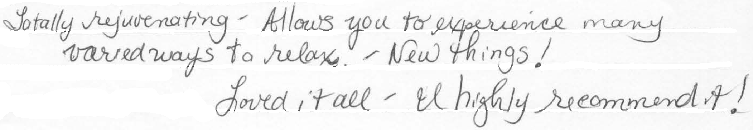 Totally rejuvenating - Allows you to experience many
varied ways to relax. - New things!
Loved it all - I highly recommend it!